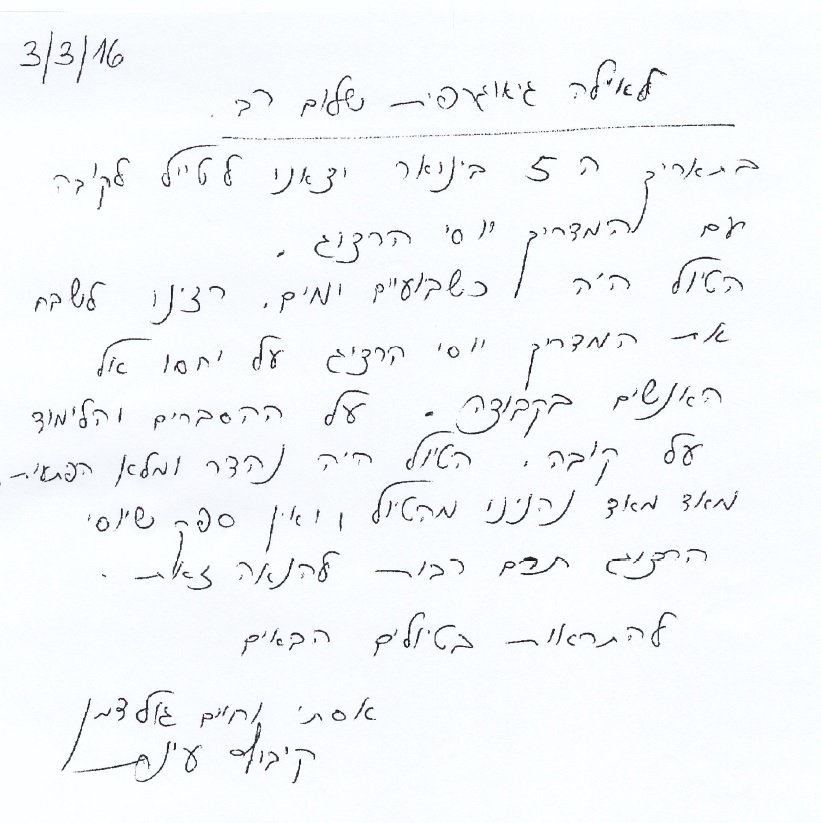 3/3/16
לאילה גיאוגרפית שלום רב.
בתאריך ה 5 בינואר יצאנו לטייל לקובה
עם המדריך יוסי הרצוג.
הטיול היה כשבועיים ימים. רצינו לשבח
את המדריך יוסי הרצוג על יחסו אל
האנשים בקבוצה. על ההסברים והלימוד
על קובה. הטיול היה נהדר ומלא הפתעות.
מאד מאד נהנינו מהטיול, ואין ספק שיוסי
הרצוג תרם רבות להנאה זאת.
להתראות בטיולים הבאים
אסתי וחיים גולדמן
קיבוץ עינת